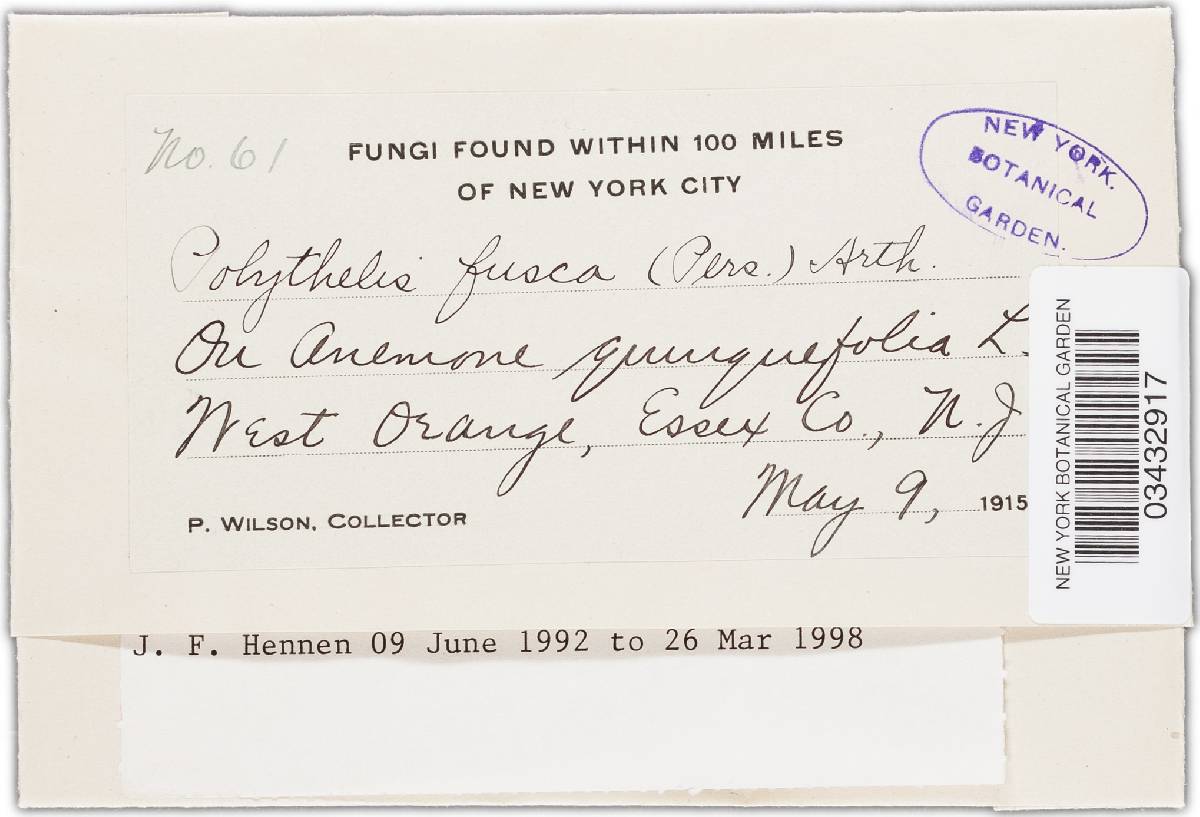 No. 61
FUNGI FOUND WITHIN 100 MILES
OF NEW YORK CITY
NEW YORK
BOTANICAL
GARDEN.
Polythelis fusca (Pers.) Arth.
On Anemone quinquefolia L.
West Orange, Essex Co., N.J
May 9, 1915
P. WILSON, COLLECTOR
NEW YORK BOTANICAL GARDEN
03432917
J. F. Hennen 09 June 1992 to 26 Mar 1998